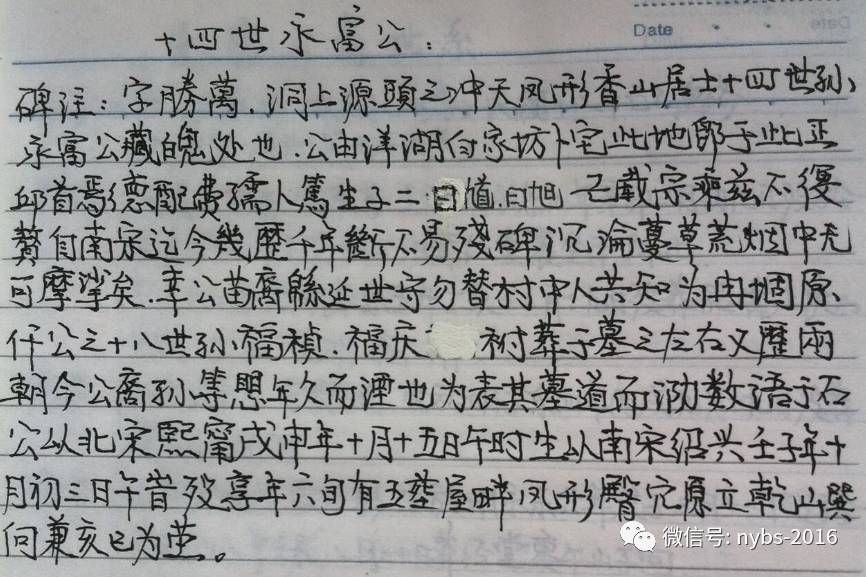 Date
十四世永富公：
碑注：字勝萬．洞上源頭之冲天凤形香山居士十四世孙、
永富公藏魄处也．公由洋湖付家坊卜宅此地即于此正
邱首焉德配費孺人篤生子二曰馗．曰旭 已載宗乘兹不復
贅自南宋迄今幾歷千年斷不易殘碑沉淪蔓草荒烟中无
可摩挲矣．幸公苗裔緜延世守勿替村中人共知为冉堌原、
仟公之十八世孙福禎．福庆 祔葬于墓之左右又歷兩
朝今公裔孙等思年久而湮也为表其墓道而泐数语于石
公从北宋熙甯戊申年十月十五日午时生从南宋绍兴壬子年十
月初三日午时歿享年六旬有五塟屋畔凤形臀穴原立乾山巽
向兼亥巳为茔。
微信号: nybs-2016